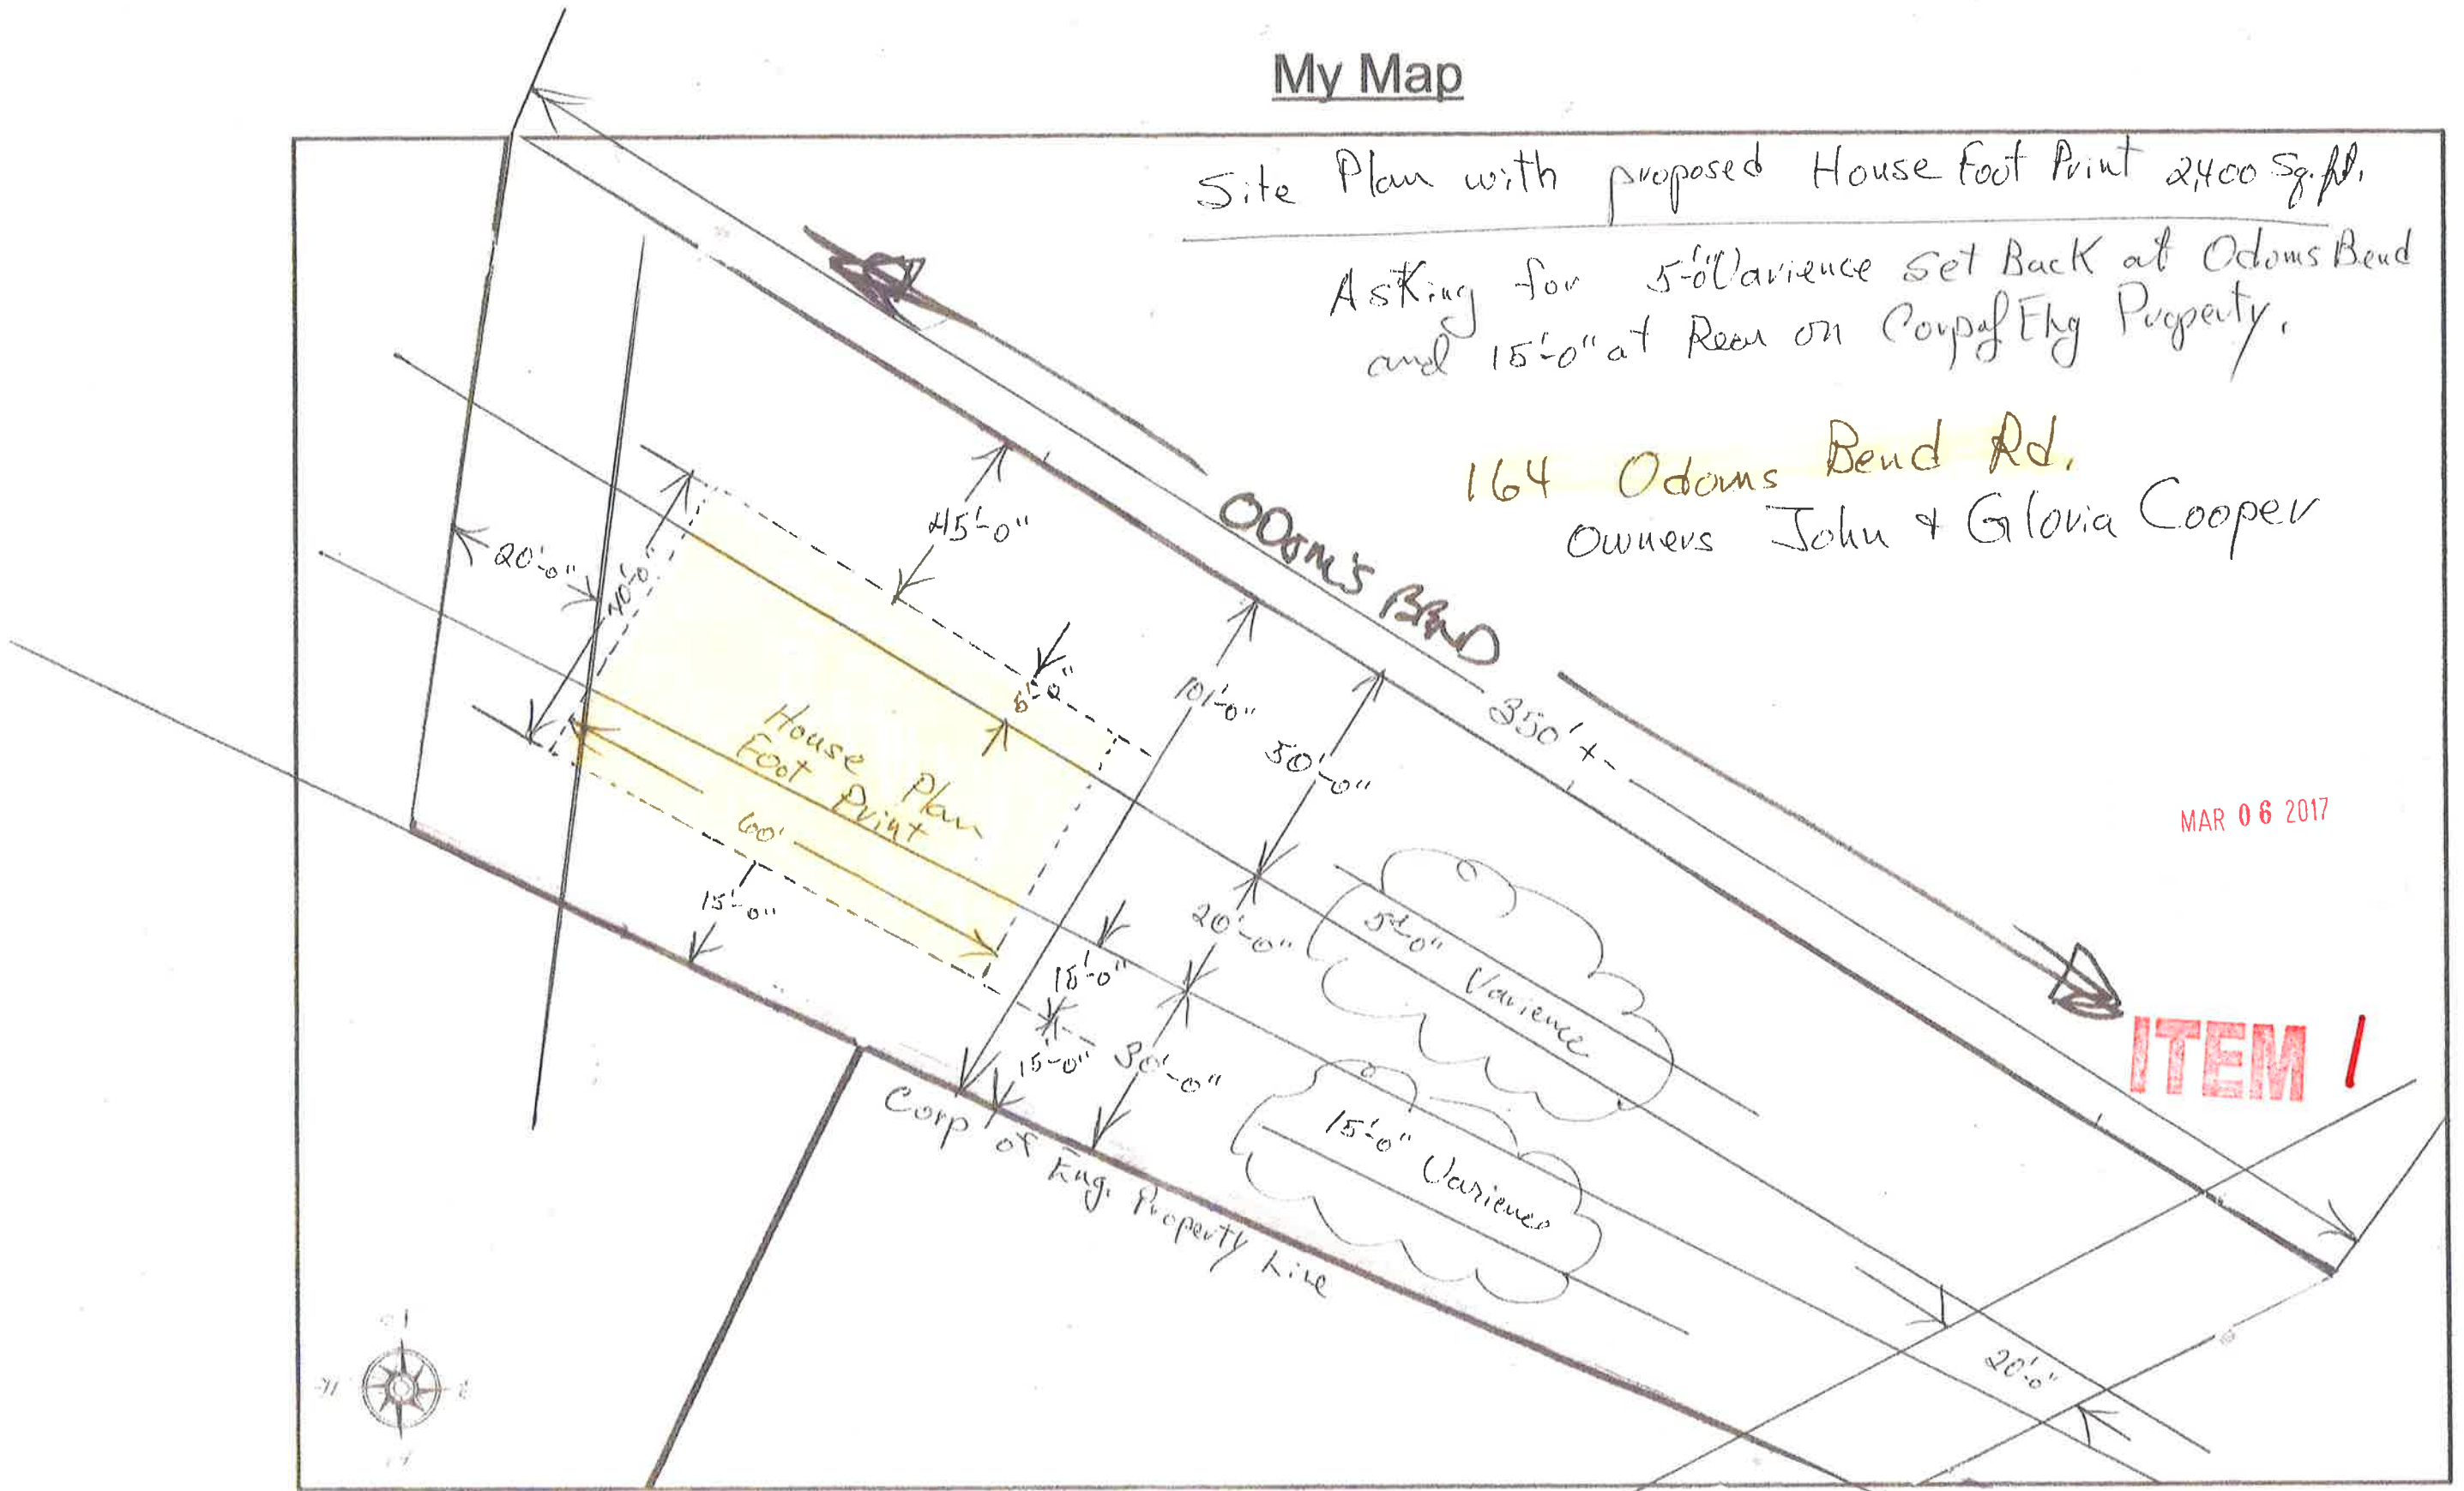 My Map
Site Plan with proposed House Foot Print 2,400 Sq. ft.
Asking for 5'-0" Varience Set Back at Odoms Bend
and 15'-0" at Rear on Corp of Eng Property.
164 Odoms Bend Rd.
Owners John & Gloria Cooper
ODOM'S BEND
350' +-
45'-0"
20'-0"
40'-0"
5'-0"
101'-0"
50'-0"
House Plan
Foot Print
60'
15'-0"
20'-0"
15'-0"
15'-0"
30'-0"
5'-0" Varience
15'-0" Varience
MAR 06 2017
ITEM 1
Corp of Eng. Property Line
20'-0"